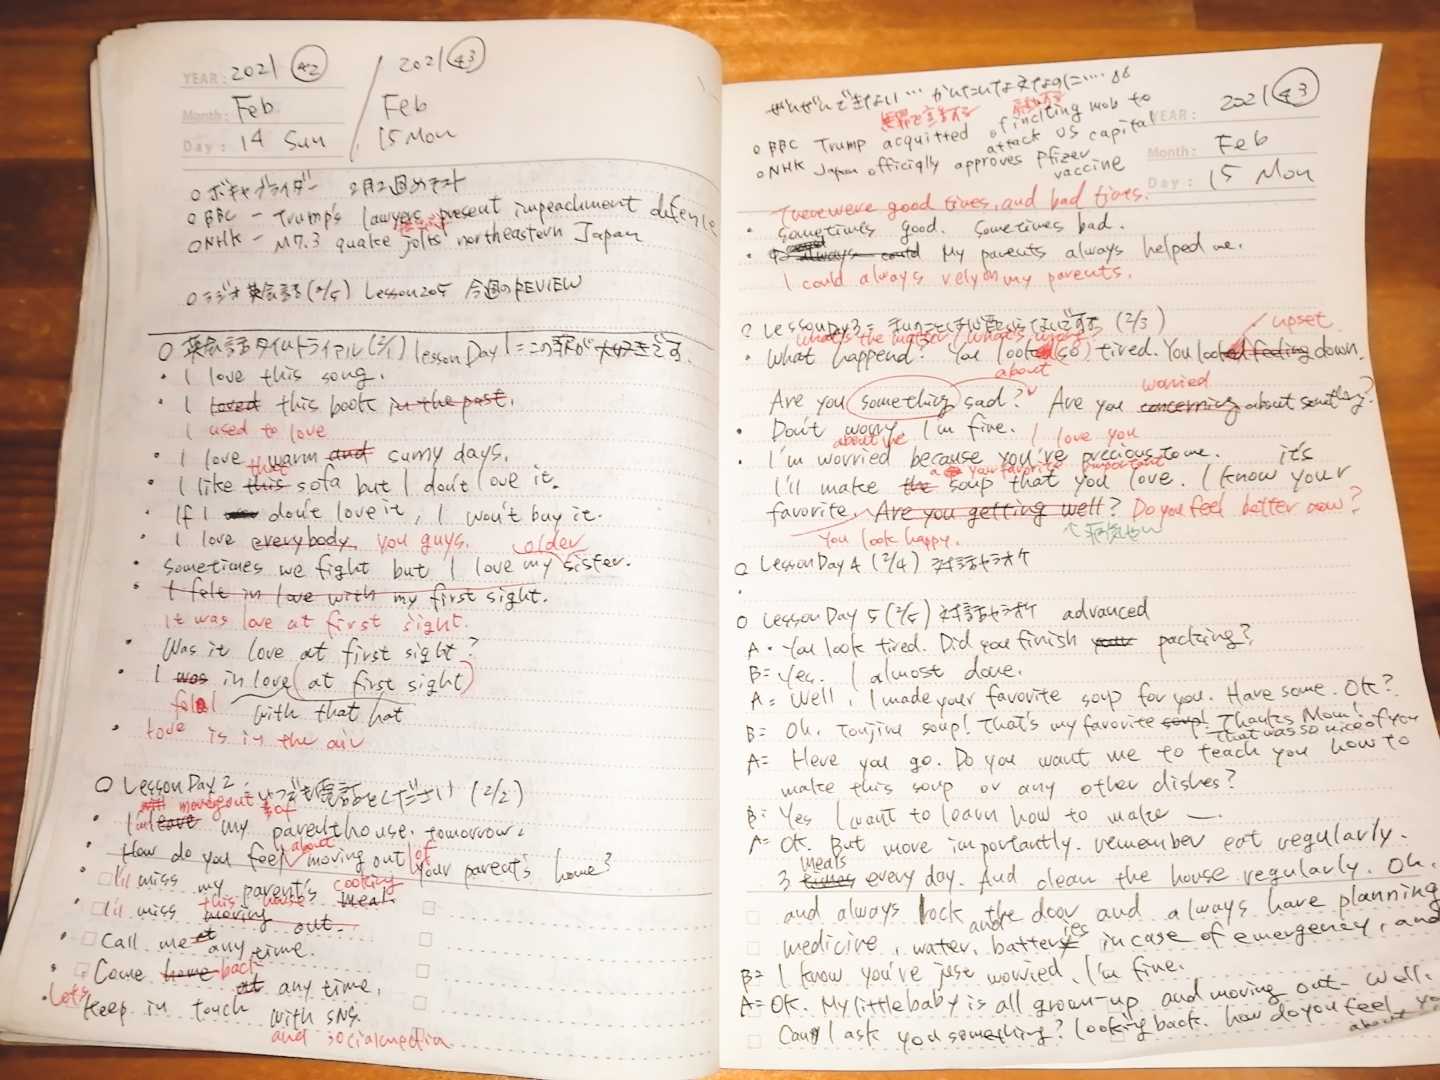 YEAR: 2021 42 / 2021 43
Month: Feb Feb
Day: 14 Sun 15 Mon
○ ボキャブライダー 2月2週めテスト
○ BBC - Trump's lawyers present impeachment defence
○ NHK - M7.3 quake jolts northeastern Japan
○ ラジオ英会話 (2/5) Lesson205 今週のREVIEW
○ 英会話タイムトライアル (2/1) lesson Day 1 = この歌が大好きです
・ I love this song.
・ I loved this book in the past.
I used to love
・ I love warm and sunny days.
that
・ I like this sofa but I don't love it.
・ If I don't love it, I won't buy it.
・ I love everybody. you guys.
older
・ Sometimes we fight but I love my sister.
・ I felt in love with my first sight.
It was love at first sight.
・ Was it love at first sight?
・ I was in love (at first sight)
fell with that hat
・ Love is in the air
○ Lesson Day 2 - いつでも電話してください (2/2)
moving out of
・ I leave my parent house. tomorrow.
about of
・ How do you feel moving out your parent's home?
cooking
I'll miss my parent's meal.
this house
I'll miss moving out.
・ Call me at any time.
・ Come home back at any time.
・ Let's Keep in touch with SNS.
and social media
ぜんぜんできない…
2021 43
YEAR:
○ BBC Trump acquitted of inciting mob to
attack US capital
○ NHK Japan officially approves Pfizer
vaccine
Month: Feb
Day: 15 Mon
There were good times, and bad times.
・ Sometimes good. Sometimes bad.
・ always could My parents always helped me.
I could always rely on my parents.
○ Lesson Day 3 = (2/3)
What's the matter / What's wrong upset
・ What happend? You look (so) tired. You looked feeling down.
about worried
Are you something sad? Are you concerning about something?
・ Don't worry. I'm fine.
about me I love you
・ I'm worried because you're precious to me. it's
a your favorite important
I'll make the soup that you love. I know your
favorite. Are you getting well? Do you feel better now?
You look happy.
○ Lesson Day 4 (2/4) 対話カラオケ
・
○ Lesson Day 5 (2/5) 対話カラオケ advanced
A・ You look tired. Did you finish packing?
B= Yes. I almost done.
A= Well, I made your favorite soup for you. Have some. OK?
B= Oh. Tonjiru soup! That's my favorite soup! Thanks Mom!
That was so nice of you
A= Here you go. Do you want me to teach you how to
make this soup or any other dishes?
B= Yes I want to learn how to make —.
A= OK. But more importantly. remember eat regularly.
meals
3 times every day. And clean the house regularly. Oh.
and always lock the door and always have planning
and
medicine, water, batteries in case of emergency, and
B= I know you've just worried. I'm fine.
A= OK. My little baby is all grown-up and moving out. Well.
Can I ask you something? Looking back. how do you feel
about